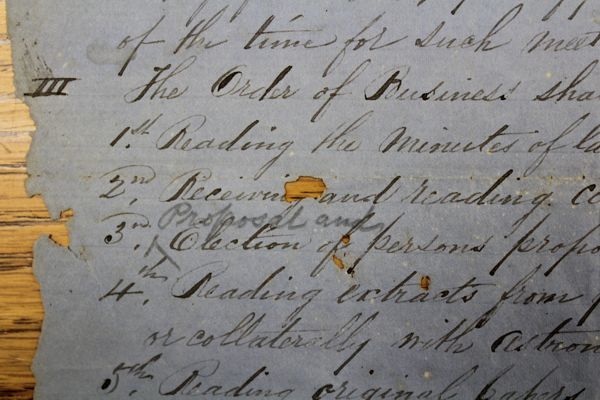 of the time for such meet
III The Order of Business sha
1st Reading the Minutes of la
2nd, Receiving and reading co
Proposal and
3rd, Election of persons propo
4th, Reading extracts from
or collaterally with astron
5th Reading original papers